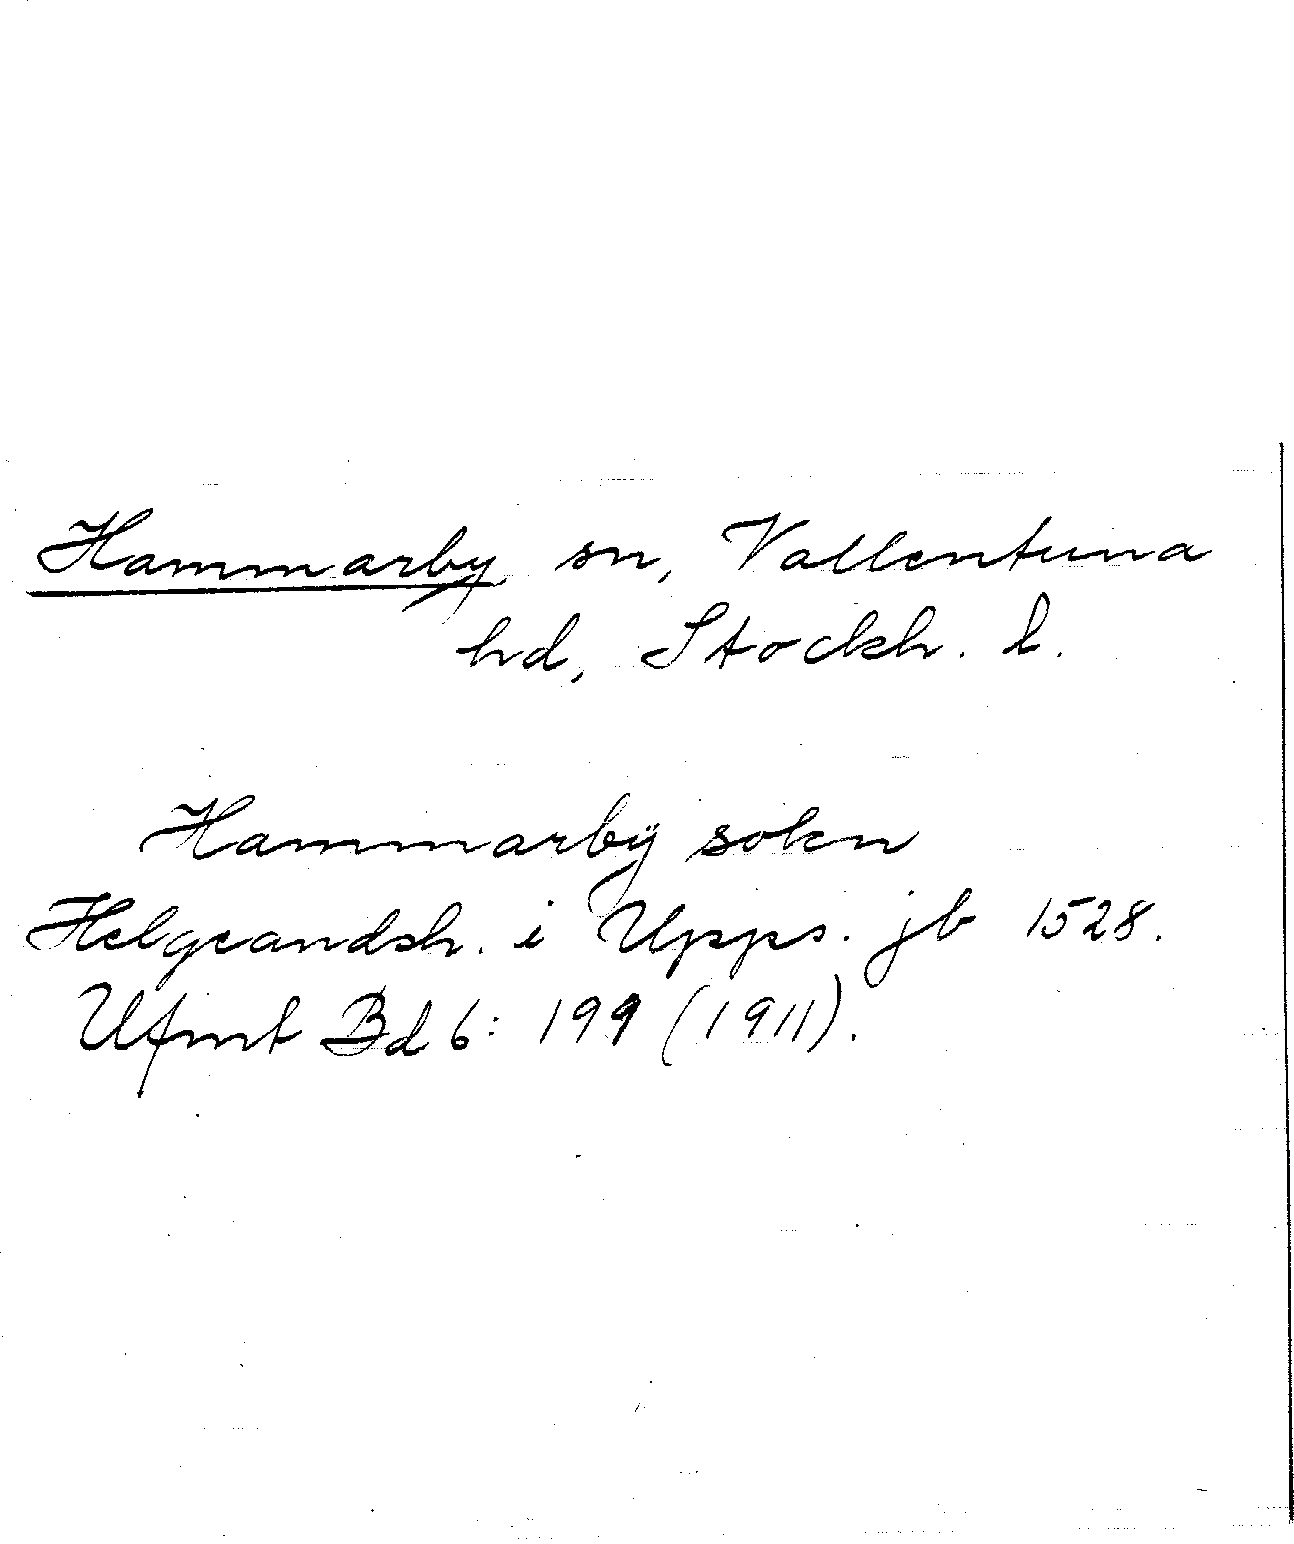 Hammarby sn, Vallentuna
hd, Stockh. l.
Hammarbÿ sokn
Helgeandsh. i Upps. jb 1528.
Ufmt Bd 6: 199 (1911).